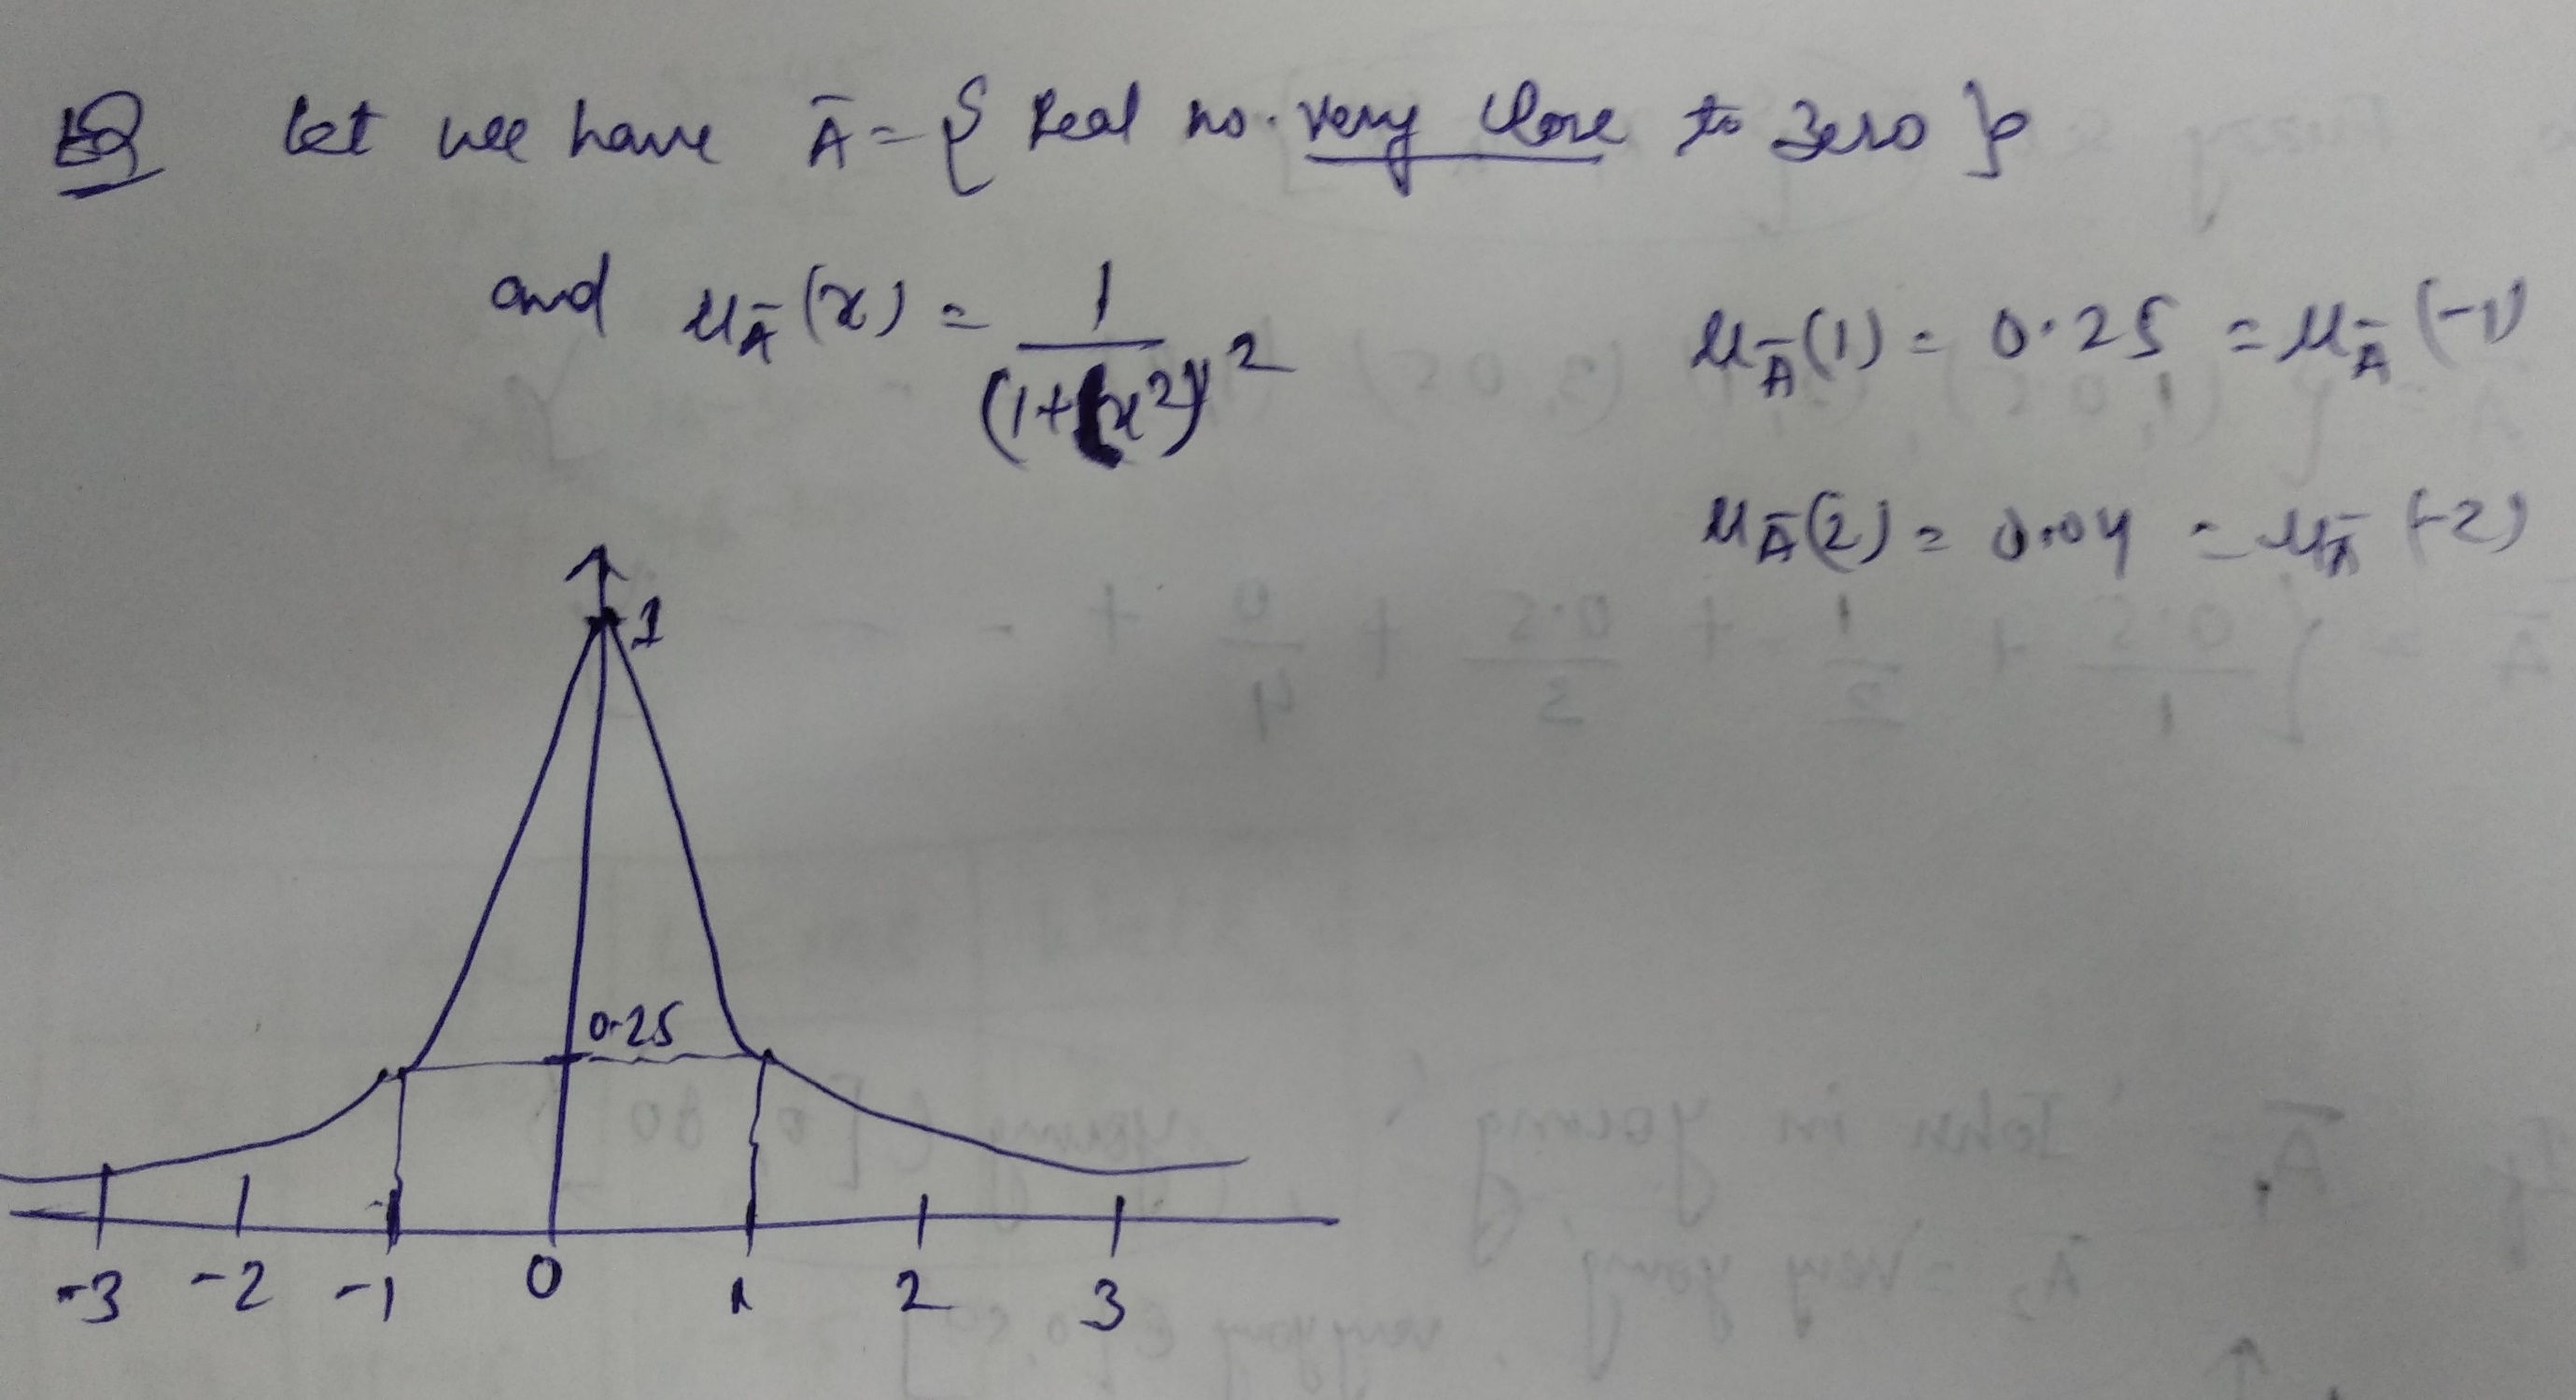 EQ Let we have Ā = { Real no. very close to zero }
and μ_Ā(x) = 1/(1+x²)²
μ_Ā(1) = 0.25 = μ_Ā(-1)
μ_Ā(2) = 0.04 = μ_Ā(-2)
1
0.25
-3 -2 -1 0 1 2 3